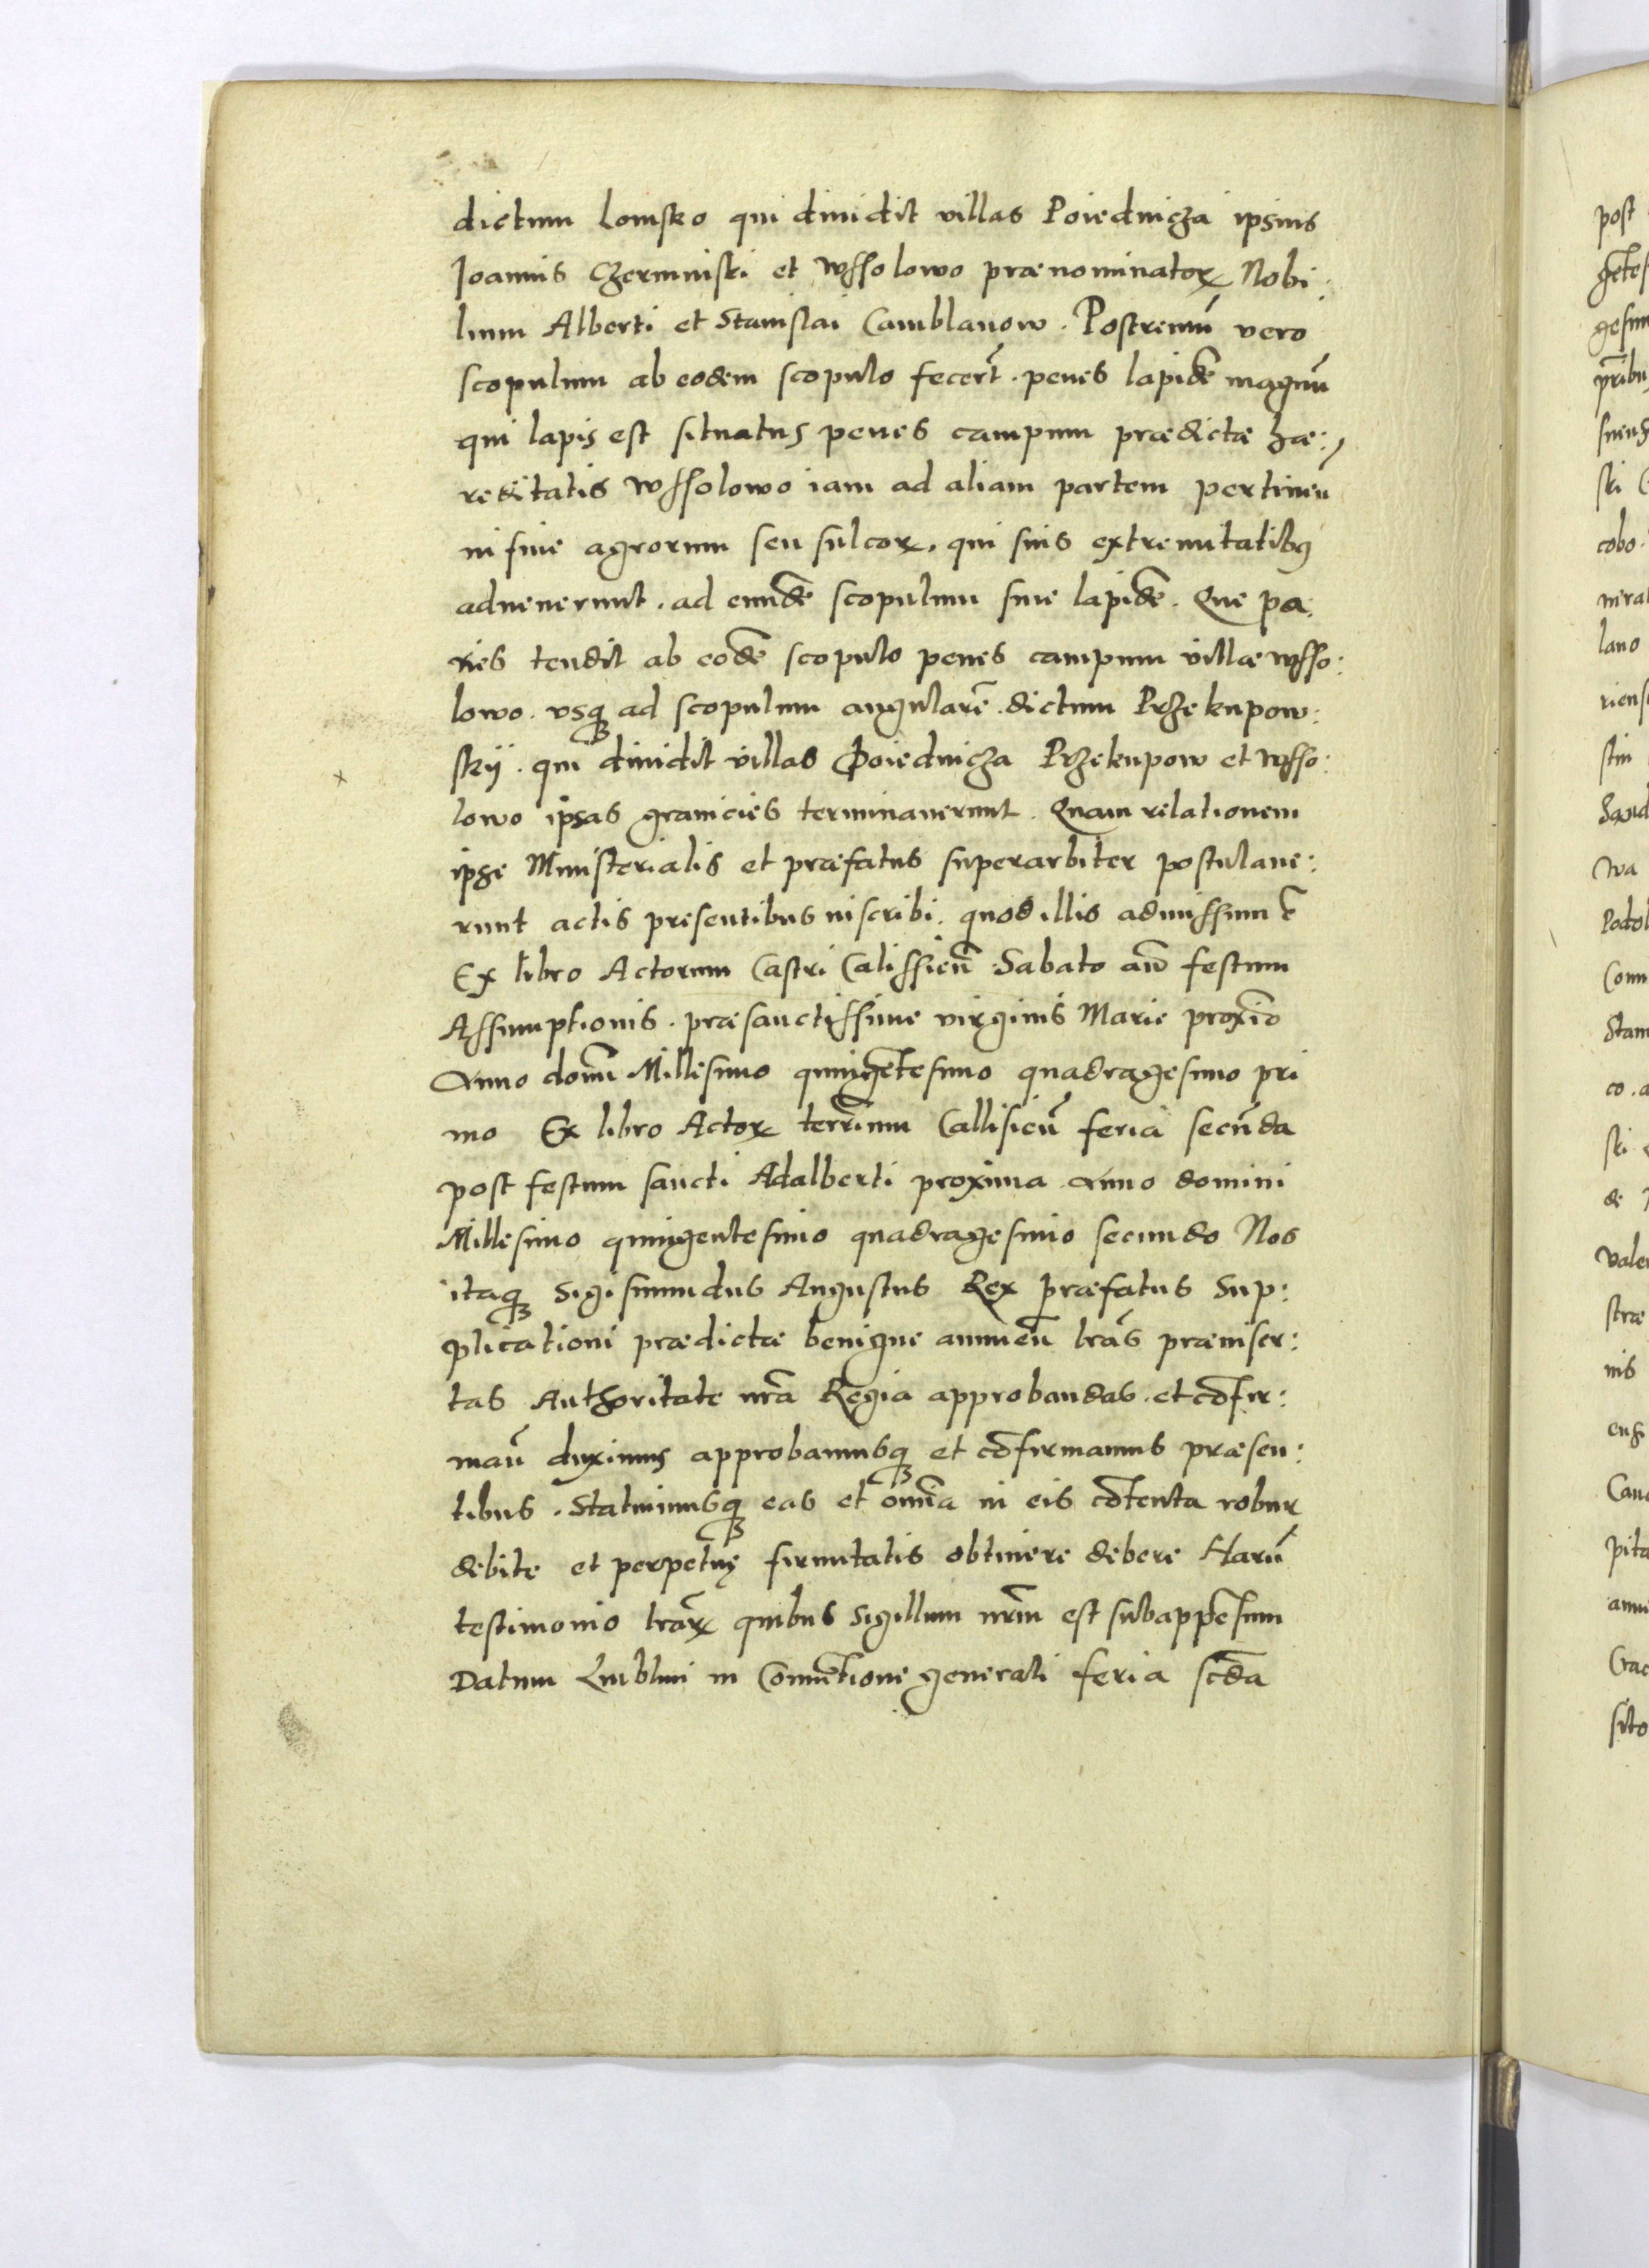 dictum Lomsko qui diuidit villas Poiednicza ipsius
Joannis Czerminski et Wssolowo prænominatoꝝ Nobi:
lium Alberti et Stanislai Camblanow. Postremũ vero
scopulum ab eodem scopulo fecert̃. penes lapidẽ magnũ
qui lapis est situatus penes campum prædictæ hæ:
reditatis Wssolowo iam ad aliam partem pertineñ
in fine agrorum seu sulcoꝝ. qui suis extremitatibꝰ
aduenerunt. ad eundẽ scopulum siue lapidẽ. Que pa:
ries tendit ab eodẽ scopulo penes campum villæ Wsso:
lowo. vsqꝫ ad scopulum angularẽ. dictum Przekupow:
skij. qui diuidit villas Poiednicza Przekupow et Wsso:
lowo ipsas granicies terminauerunt. Quam relationem
ipse Ministerialis et præfatus superarbiter postulaue:
runt actis presentibus inscribi. quod illis admissum ẽ
Ex libro Actorum Castri Calissieñ Sabato añ festum
Assumptionis. præsanctissime virginis Marie proximõ
Anno domĩ Millesimo quingẽtesimo quadragesimo pri
mo Ex libro Actoꝝ terrm̃ Callisieñ feria secũda
post festum sancti Adalberti proxima Anno domini
Millesimo quingentesimo quadragesimo secundo Nos
itaqꝫ Sigismundus Augustus Rex præfatus Sup:
plicationi prædictæ benigne annueñ lrãs præinser:
tas Authoritate nrã Regia approbandas. et cõfir:
mañ duximus approbamusqꝫ et cõfirmamus præsen:
tibus. Statuimusqꝫ eas et omĩa in eis cõtenta robur
debite et perpetuę firmitatis obtinere debere Harũ
testimonio lrãꝝ quibus Sigillum nrm̃ est subappẽsum
Datum Lublini in Conuẽtione generali feria scd̃a